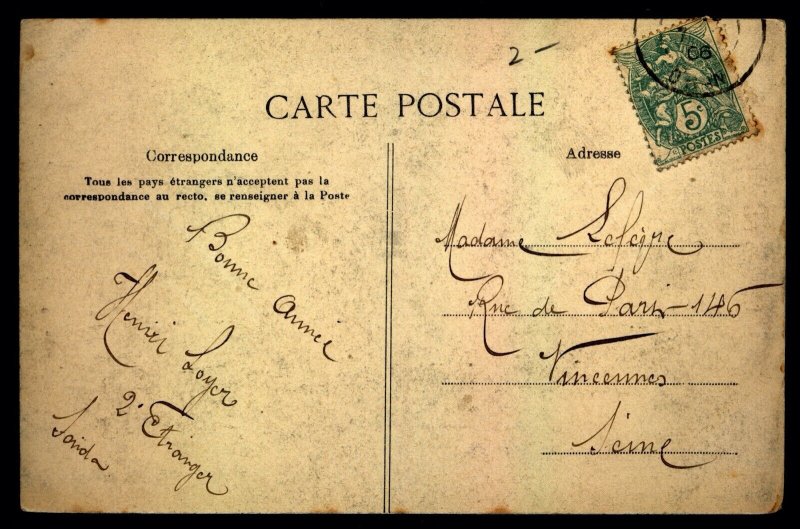 2-
CARTE POSTALE
Correspondance
Tous les pays étrangers n'acceptent pas la
correspondance au recto, se renseigner à la Poste
Bonne Année
Henri Loyer
2e Etranger
Saïda
Adresse
Madame
Rue de Paris-146
Vincennes
Seine
5c
POSTES
06